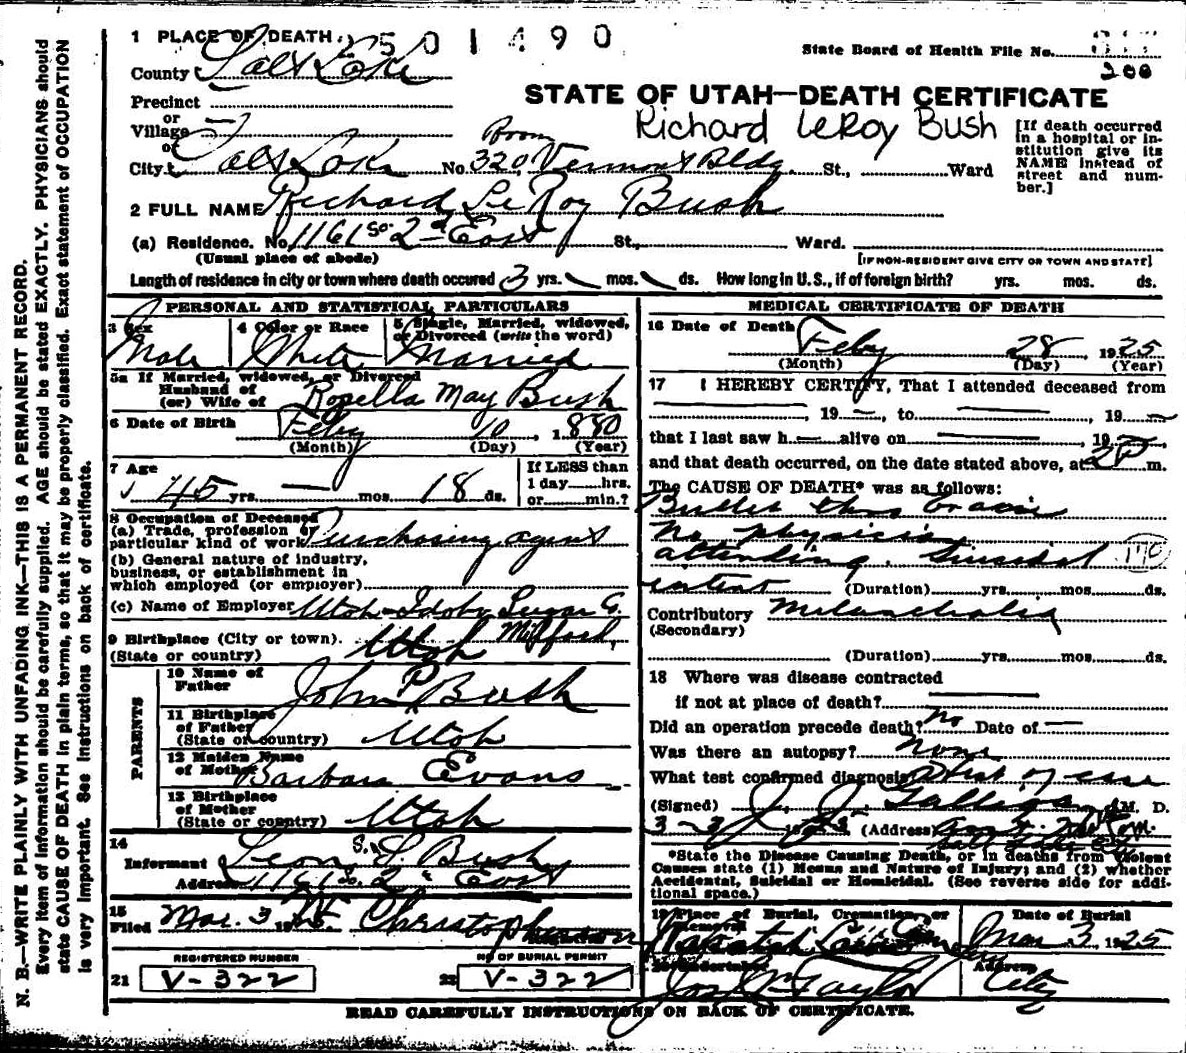 1 PLACE OF DEATH 2501490
State Board of Health File No.
200
County Salt Lake
STATE OF UTAH—DEATH CERTIFICATE
Precinct
or
Village
or
Richard LeRoy Bush
[If death occurred in a hospital or institution give its NAME instead of street and number.]
City Salt Lake No. Room 320, Vermont Bldg. St., Ward
2 FULL NAME Richard Le Roy Bush
(a) Residence. No. 1161 So. 2nd East St., Ward.
(Usual place of abode) [IF NON-RESIDENT GIVE CITY OR TOWN AND STATE]
Length of residence in city or town where death occured 3 yrs. mos. ds. How long in U.S., if of foreign birth? yrs. mos. ds.
PERSONAL AND STATISTICAL PARTICULARS
3 Sex Male
4 Color or Race White
5 Single, Married, widowed, or Divorced (write the word) Married
5a If Married, widowed, or Divorced
Husband of
(or) Wife of Rosella May Bush
6 Date of Birth Feby 10, 1880
(Month) (Day) (Year)
7 Age
45 yrs. — mos. 18 ds.
If LESS than
1 day hrs.
or min.?
8 Occupation of Deceased
(a) Trade, profession or
particular kind of work Purchasing agent
(b) General nature of industry,
business, or establishment in
which employed (or employer)
(c) Name of Employer Utah-Idaho Sugar Co.
9 Birthplace (City or town). Milford,
(State or country) Utah
PARENTS
10 Name of
Father John P Bush
11 Birthplace
of Father
(State or country) Utah
12 Maiden Name
of Mother Barbara Evans
13 Birthplace
of Mother
(State or country) Utah
14
Informant Leon S. Bush
Address 1161 So. 2nd East
15
Filed Mar. 3 1925 Christopherson
Registrar
REGISTERED NUMBER
21 V-322
NO OF BURIAL PERMIT
22 V-322
MEDICAL CERTIFICATE OF DEATH
16 Date of Death Feby 28, 1925
(Month) (Day) (Year)
17 I HEREBY CERTIFY, That I attended deceased from
, 19 —, to —, 19 —
that I last saw h — alive on —, 19 —,
and that death occurred, on the date stated above, at 2 P m.
The CAUSE OF DEATH* was as follows:
Bullet thru brain
No physician
attending. Suicidal 170
intent (Duration) yrs. mos. ds.
Contributory Melancholia
(Secondary)
(Duration) yrs. mos. ds.
18 Where was disease contracted
if not at place of death?
Did an operation precede death? no Date of —
Was there an autopsy? none
What test confirmed diagnosis
(Signed) J. J. Galligan M. D.
(Address)
Salt Lake City
*State the Disease Causing Death, or in deaths from Violent Causes state (1) Means and Nature of Injury; and (2) whether Accidental, Suicidal or Homicidal. (See reverse side for additional space.)
19 Place of Burial, Cremation, or
Removal
Wasatch Lawn Cem
Date of Burial
Mar 3, 1925
20 Undertaker
Jos. Wm Taylor
Address
City
READ CAREFULLY INSTRUCTIONS ON BACK OF CERTIFICATE.
N. B.—WRITE PLAINLY WITH UNFADING INK—THIS IS A PERMANENT RECORD.
Every item of information should be carefully supplied. AGE should be stated EXACTLY. PHYSICIANS should
state CAUSE OF DEATH in plain terms, so that it may be properly classified. Exact statement of OCCUPATION
is very important. See instructions on back of certificate.